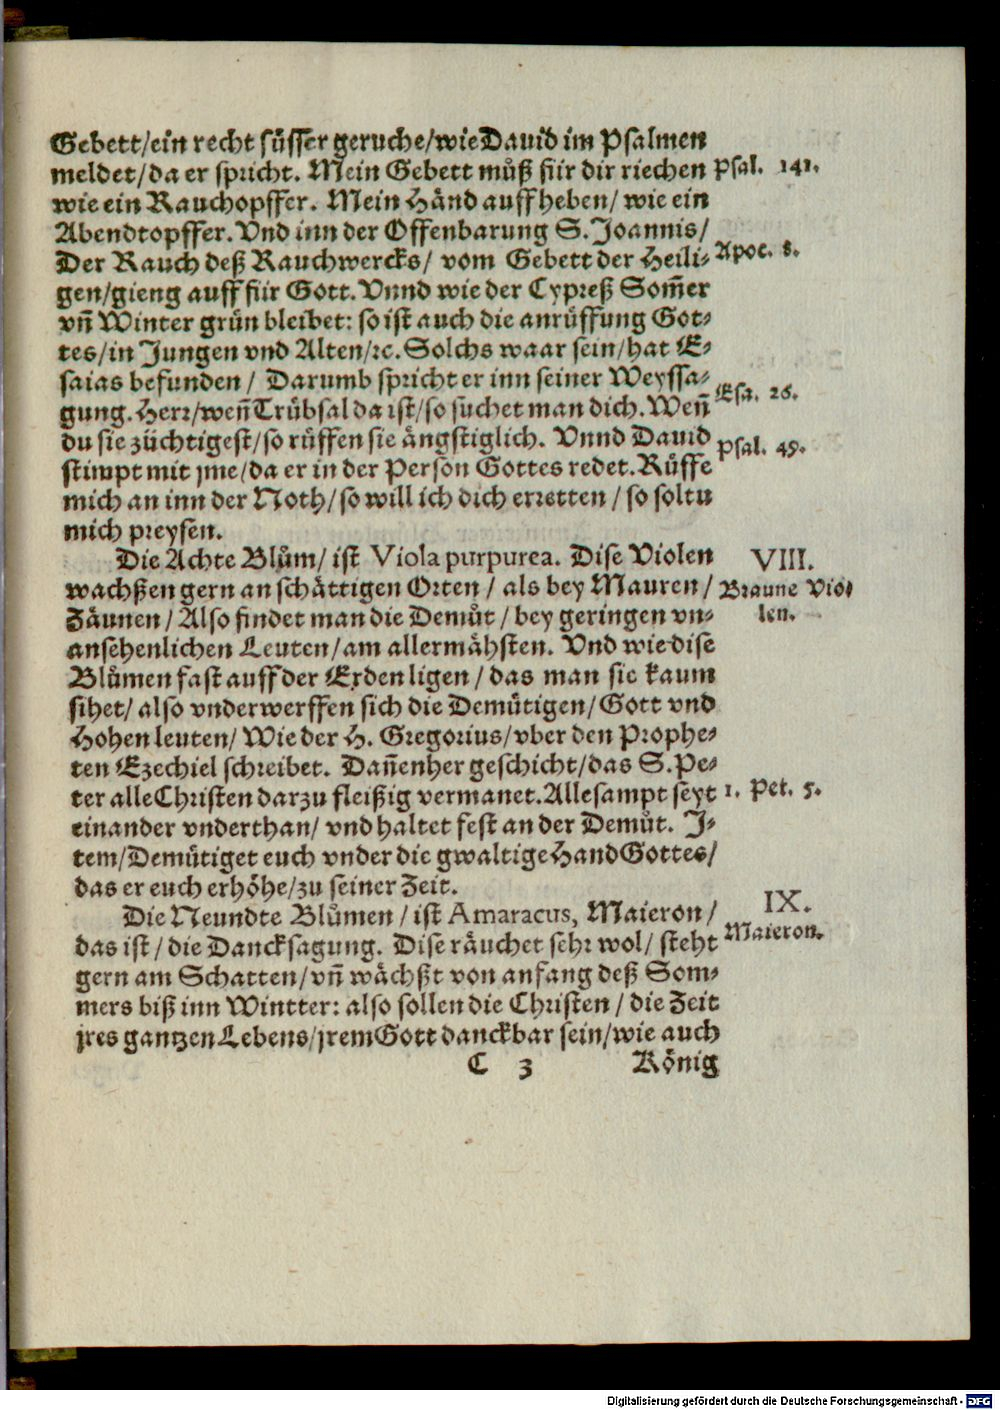 Gebett/ein recht süsser geruche/wie Dauid im Psalmen
meldet/da er spricht. Mein Gebett můß für dir riechen
Psal. 141.
wie ein Rauchopffer. Mein Händ auffheben/ wie ein
Abendtopffer. Vnd inn der Offenbarung S. Joannis/
Der Rauch deß Rauchwercks/ vom Gebett der Heili-
Apoc. 8.
gen/gieng auff für Gott. Vnnd wie der Cypreß Som̃er
vñ Winter grün bleibet: so ist auch die anrüffung Got-
tes/in Jungen vnd Alten/ꝛc. Solchs waar sein/hat E-
saias befunden/ Darumb spricht er inn seiner Weyssa-
Esa. 26.
gung. Herr/weñ Trübsal da ist/so suchet man dich. Weñ
du sie züchtigest/so rüffen sie ängstiglich. Vnnd Dauid
Psal. 49.
stimpt mit jme/da er in der Person Gottes redet. Rüffe
mich an inn der Noth/so will ich dich erretten/so soltu
mich preysen.
Die Achte Blům/ ist Viola purpurea. Dise Violen
VIII.
wachßen gern an schättigen Orten/ als bey Mauren/
Braune Vio-
Zäunen/ Also findet man die Demůt/ bey geringen vn-
len.
ansehenlichen Leuten/am allermähsten. Vnd wie dise
Blůmen fast auff der Erden ligen/ das man sie kaum
sihet/ also vnderwerffen sich die Demütigen/ Gott vnd
Hohen leuten/ Wie der H. Gregorius/vber den Prophe-
ten Ezechiel schreibet. Dañenher geschicht/das S. Pe-
ter alle Christen darzu fleißig vermanet. Allesampt seyt
1. Pet. 5.
einander vnderthan/ vnd haltet fest an der Demůt. J-
tem/Demütiget euch vnder die gwaltige Hand Gottes/
das er euch erhöhe/zu seiner Zeit.
Die Neundte Blůmen/ist Amaracus, Maieron/
IX.
das ist/ die Dancksagung. Dise räuchet sehr wol/ steht
Maieron.
gern am Schatten/vñ wächßt von anfang deß Som-
mers biß inn Wintter: also sollen die Christen/ die Zeit
jres gantzen Lebens/jrem Gott danckbar sein/wie auch
C 3
König
Digitalisierung gefördert durch die Deutsche Forschungsgemeinschaft - DFG